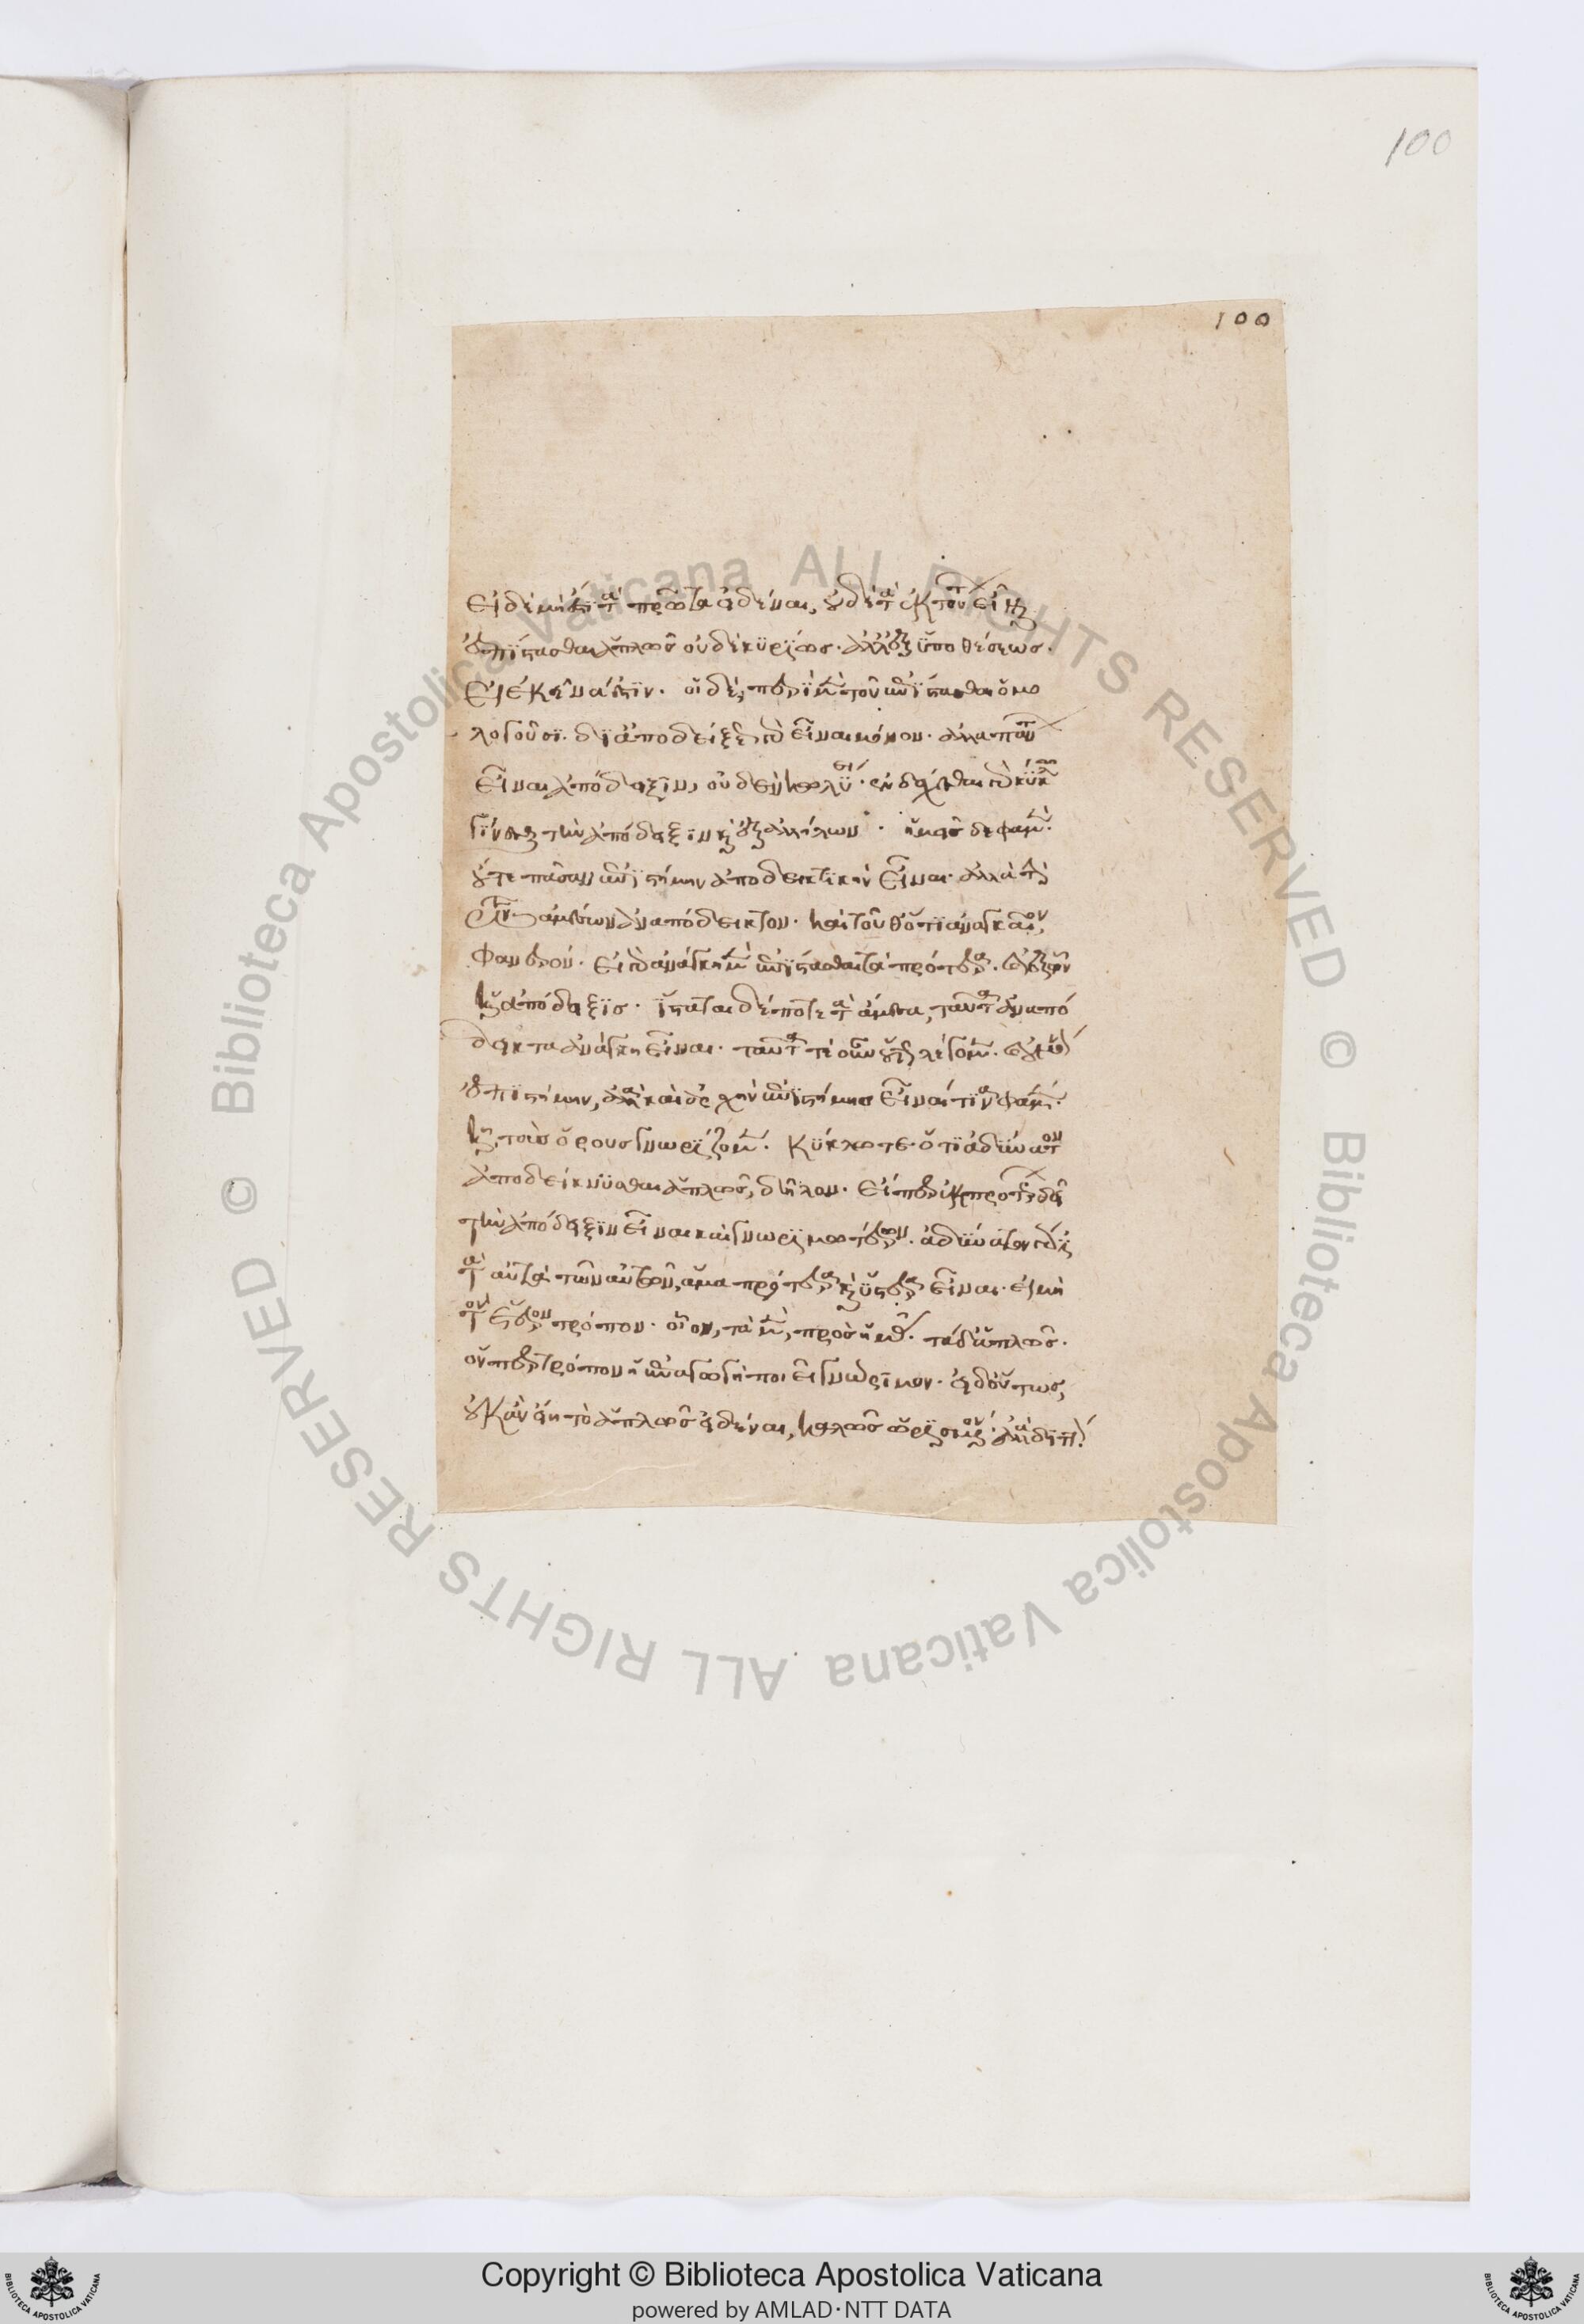 100
100
εἰ δὲ μὴ ἔστι τὰ πρῶτα εἰδέναι, οὐδὲ τὰ ἐκ τούτων εἶναι
ἐπίστασθαι ἁπλῶς οὐδὲ κυρίως. ἀλλ' ἐξ ὑποθέσεως.
εἰ ἐκεῖνα ἔστιν. οἱ δὲ, περὶ μὲν τοῦ ἐπίστασθαι ὁμο
λογοῦσι. δι ἀποδείξεως γὰρ εἶναι μόνον. ἀλλὰ πάντων
εἶναι ἀπόδειξιν, οὐδὲν κωλύει. ἐνδέχεσθαι γὰρ κύκλω
γίνεσθαι τὴν ἀπόδειξιν καὶ ἐξ ἀλλήλων. ἡμεῖς δὲ φαμὲν.
οὔτε πᾶσαν ἐπιστήμην ἀποδεικτικὴν εἶναι. ἀλλὰ τὴν
τῶν ἀμέσων ἀναπόδεικτον. καὶ τοῦθ' ὅτι ἀναγκαῖον,
φανερόν. εἰ γὰρ ἀνάγκη μὲν ἐπίστασθαι τὰ πρότερα. καὶ ἐξ ὧν
ἡ ἀπόδειξις. ἵσταται δέ ποτε τὰ ἄμεσα, ταῦτα ἀναπό
δεικτα ἀνάγκη εἶναι. ταῦτα τὲ οὖν οὕτως λέγομεν. καὶ οὐ μόνον
ἐπιστήμην, ἀλλὰ καὶ ἀρχὴν ἐπιστήμης εἶναί τινα φαμέν.
ἧ τοὺς ὅρους γνωρίζομεν. κύκλω τε ὅτι ἀδύνατον
ἀποδείκνυσθαι ἁπλῶς, δῆλον. εἴπερ ἐκ προτέρων δεῖ
τὴν ἀπόδειξιν εἶναι καὶ γνωριμωτέρων. ἀδύνατον γάρ ἐστι
τὰ αὐτὰ τῶν αὐτῶν, ἅμα πρότερα καὶ ὕστερα εἶναι. εἰ μὴ
τὸν ἕτερον τρόπον. οἷον, τὰ μὲν, πρὸς ἡμᾶς. τὰ δ' ἁπλῶς.
ὅνπερ τρόπον ἡ ἐπαγωγὴ ποιεῖ γνώριμον. εἰ δ' οὕτως,
οὐκ ἂν εἴη τὸ ἁπλῶς εἰδέναι, καλῶς ὡρισμένον. ἀλλὰ διττόν.
Copyright © Biblioteca Apostolica Vaticana
powered by AMLAD·NTT DATA